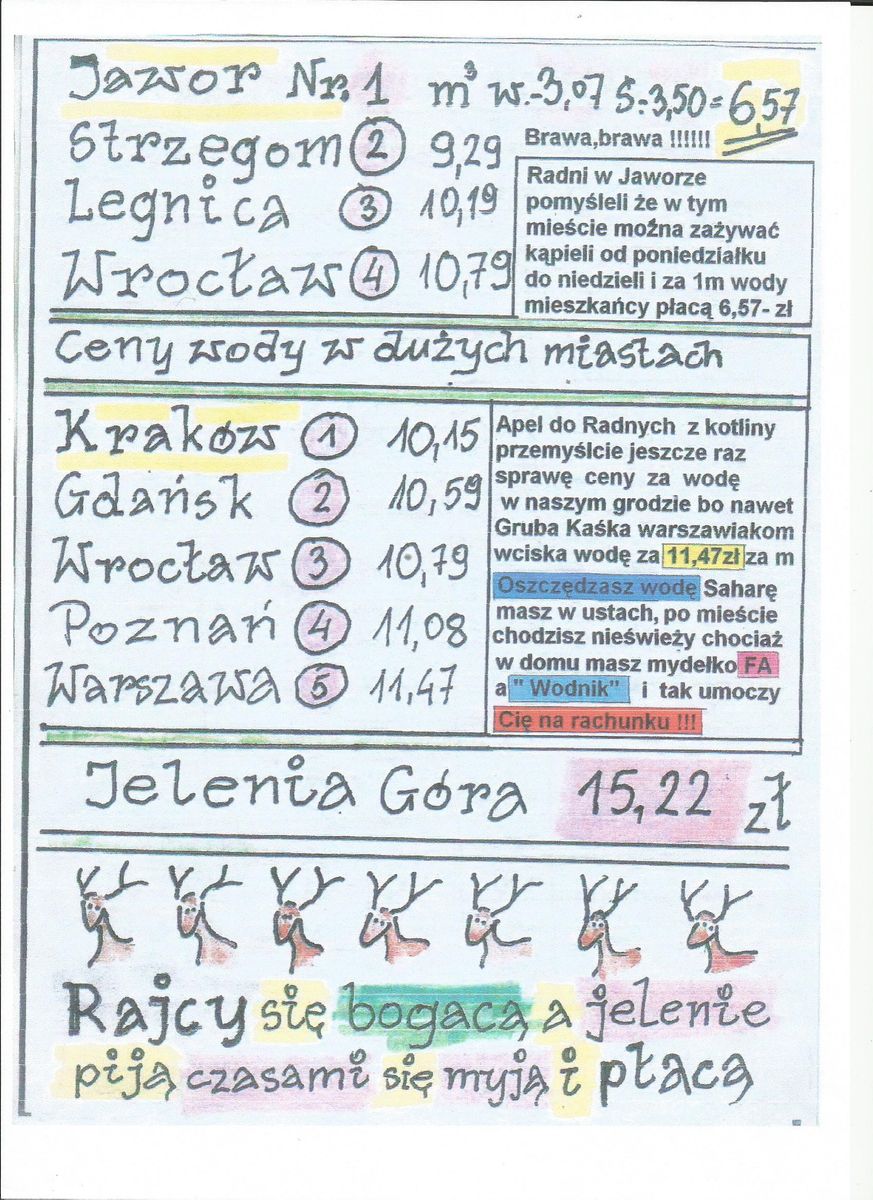 Jawor Nr. 1 m³ w.-3,07 Ś-3,50=6,57
Brawa,brawa !!!!!!
Strzegom 2 9,29
Legnica 3 10,19
Wrocław 4 10,79
Radni w Jaworze
pomyśleli że w tym
mieście można zażywać
kąpieli od poniedziałku
do niedzieli i za 1m wody
mieszkańcy płacą 6,57- zł
Ceny wody w dużych miastach
Kraków 1 10,15
Gdańsk 2 10,59
Wrocław 3 10,79
Poznań 4 11,08
Warszawa 5 11,47
Apel do Radnych z kotliny
przemyślcie jeszcze raz
sprawę ceny za wodę
w naszym grodzie bo nawet
Gruba Kaśka warszawiakom
wciska wodę za 11,47zł za m
Oszczędzasz wodę Saharę
masz w ustach, po mieście
chodzisz nieświeży chociaż
w domu masz mydełko FA
a " Wodnik" i tak umoczy
Cię na rachunku !!!
Jelenia Góra 15,22 zł
Rajcy się bogacą a jelenie
piją czasami się myją i płacą